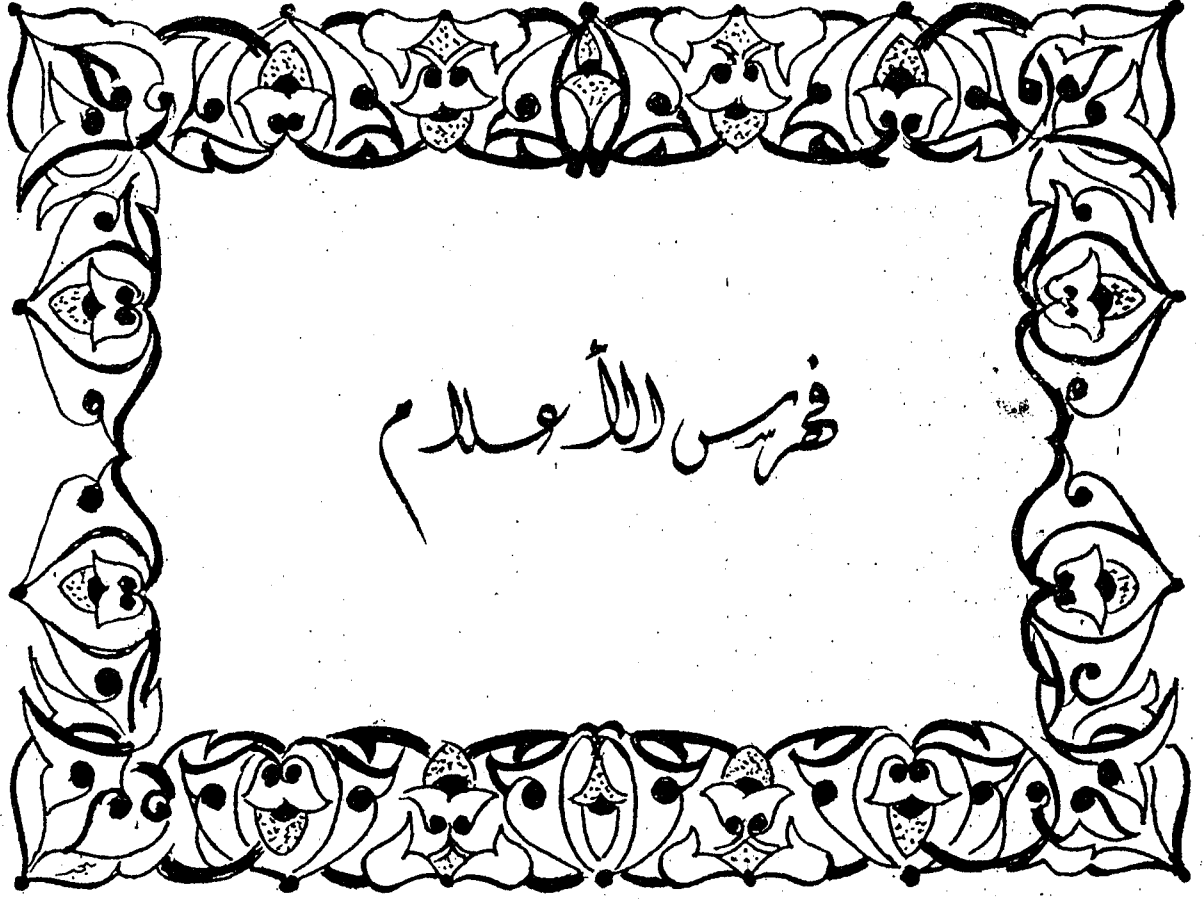 فهرس الأعلام